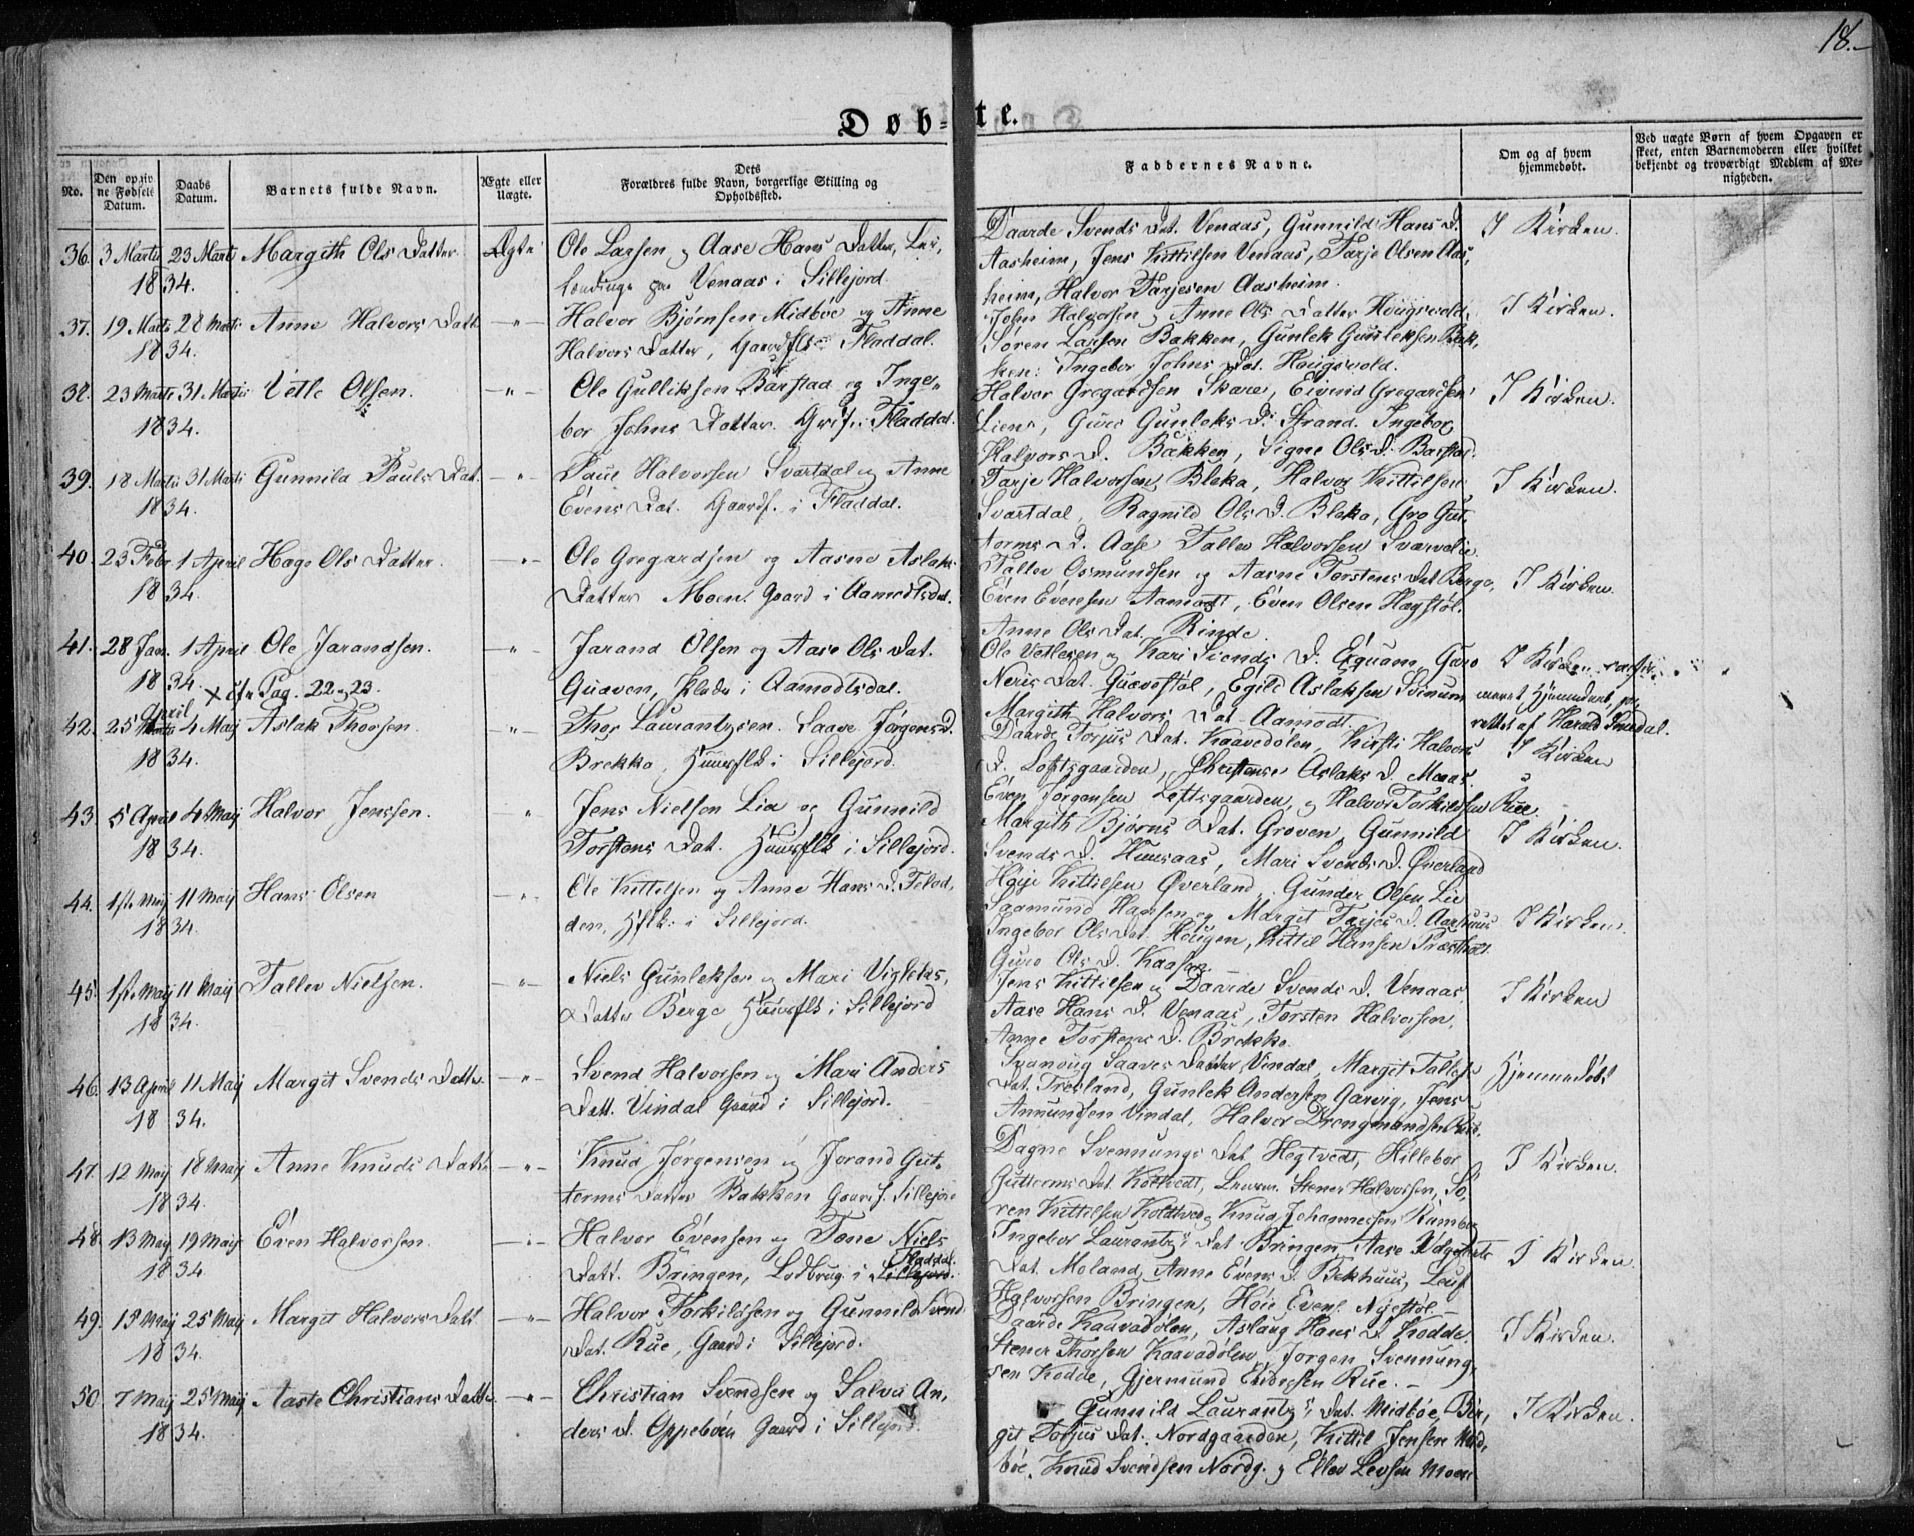 18.
Døb-te.
No.
Den opgivne Fødsels Datum.
Daabs Datum.
Barnets fulde Navn.
Ægte eller Uægte.
Dets Forældres fulde Navn, borgerlige Stilling og Opholdssted.
Faddernes Navne.
Om og af hvem hjemmedøbt.
Ved uægte Børn af hvem Opgaven er skeet, enten Barnemoderen eller hvilket bekjendt og troværdigt Medlem af Menigheden.
36. 3 Martii 23 Marti Margith Ols Datter Ægte Ole Larsen og Aase Hans Datter,
1834. paa Venaas i Sillejord
Daarde Svends Dat. Venaas, Gunnild Hans D. I Kirken.
Aasheim, Jens Kittilsen Venaas, Tarje Olsen Aas,
heim, Halvor Tarjesen Aasheim.
37. 19 Marti 28 Marti Anne Halvors Datt. -"- Halvor Bjørnsen Midbøe og Anne
1834. Halvors Datter, Gaardflk Fladdal.
John Halvorsen og Anne Ols Datter Hougsvold, I Kirken.
Søren Larsen Bakken, Gunlek Gunleksen Bak,
ken: Ingebor Johns Dat. Hougsvold.
38. 23 Marti 31 Martii Vetle Olsen. -"- Ole Gulliksen Barstad og Inge,
1834. bor Johns Datter. i Fladdal.
Halvor Gregardsen Skare, Eivind Gregardsen I Kirken.
Lien, Guro Gunleks D. Strand. Ingebor
Halvors D. Bakken, Signe Ols D. Barstad.
39. 18 Martii 31 Marti Gunnila Pauls Dat. -"- Paul Halvorsen Svartdal og Anne
1834. Evens Dat. Gaardf. i Fladdal.
Tarje Halvorsen Bleka, Halvor Kittilsen I Kirken.
Svartdal, Ragnild Ols D. Bleka, Gro Gut,
torms D. Aase Tallev Halvorsen
40. 23 Febr 1 April Hage Ols Datter. -"- Ole Gregardsen og Aasne Aslaks
1834. Datter Moen. Gaard i Aamodtsdal.
Tallev Osmundsen og Aasne Torstens Dat Berge, I Kirken.
Even Evensen Aamodt, Even Olsen Hagstøl.
Anne Ols Dat. Rinde.
41. 28 Jan. 1 April Ole Jarandsen. -"- Jarand Olsen og Aase Ols Dat.
1834. × cfr Pag. 22 og 23. Guaven, Plads i Aamodtsdal.
Ole Vetlesen og Kari Svends D. Guro I Kirken
Neris Dat. Guavestøl, Egild Aslaksen Svinum Hjemmedaab, for,
Margith Halvors Dat Aamodt rettet af Harald Smedal.
42. 25 April 4 Maij Aslak Thorsen. -"- Thor Laurantzsen. Saave Jørgens D.
1834. Brekka, Huusflk i Sillejord.
Daarde Torjus Dat. Kaavedølen, Kirsti Halvors I Kirken
D. Loftsgaarden, Christense Aslaks D. Moens
Even Jørgensen Loftsgaarden, og Halvor Torkildsen Rue.
43. 5 April 4 Maij Halvor Jenssen. " Jens Nielsen Lia og Gunnild
1834. Torstens Dat. Huusflk i Sillejord.
Margith Bjørns Dat. Groven, Gunnild I Kirken.
Svends D. Huusaas, Mari Svends D. Øverland
Kittilsen Øverland, Gunder Olsen Lie
44. 1ste Maij 11 Maij Hans Olsen -"- Ole Kittilsen og Anne Hans D.
1834. den, Hflk: i Sillejord.
Saamund Hansen og Margit Tarjes D. Aarhuus I Kirken.
Ingebor Ols Dat. Hougen, Kittil Hansen Præstholt
Guro Ols D. Kaasen.
45. 1ste Maij 11 Maij Tallev Nielsen. -"- Niels Gunleksen og Mari Vigleks,
1834. Datter Berge Huusflk i Sillejord
Jens Kittilsen og Daarde Svends D. Venaas, I Kirken
Aase Hans D. Venaas, Torsten Halvorsen,
Anne Torstens D. Brekke.
46. 13 April 11 Maij Margit Svends Datter -"- Svend Halvorsen og Mari Anders
1834. Datt. Vindal Gaard i Sillejord.
Svanoug Saaves Datter Vindal, Margit Tallefs Hjemmedøbt
Dat. Treland, Gunlek Andersen Garvig, Jens
Amundsen Vindal, Halvor Drengmandsen
47. 12 Maij 18 Maij Anne Knuds Datt -"- Knud Jørgensen og Jorand Gut,
1834. torms Datter Bakken Gaardf. Sillejord
Dagne Svennungs Dat Hegtvedt, Hillebor I Kirken.
Guttorms Dat Koltvedt, Stener Halvorsen, Sø,
ren Kittilsen Koltvedt og Knud Johannessen
48. 13 Maij 19 Maij Even Halvorsen. -"- Halvor Evensen og Tone Niels
1834. Datt. Bringen, Lodbrug i Sillejord. Fladdal.
Ingebor Laurantz's Dat. Bringen, Aase I Kirken
Dat. Moland, Anne Evens D. Bekhuus, Leuf
Halvorsen Bringen, Høie Evens. Nystøl.
49. 15 Maij 25 Maij Margit Halvors Datt -"- Halvor Torkildsen og Gunnild Svend
1834. Dat. Rue, Gaard i Sillejord.
Daarde Kaavadølen, Aslaug Hans D. Kodde I Kirken.
Stener Thorsen Kaavadølen, Jørgen Svennung,
sen Kodde, Gjermund Endresen Rue. -
50. 7 Maij 25 Maij Aaste Christians Datter -"- Christian Svendsen og Salvei An,
1834. ders D. Oppebøen Gaard i Sillejord.
Gunnild Laurantz's Dat. Midbøe, Bir, I Kirken.
git Torjus Dat. Nordgaarden, Kittil Jensen Mid,
bøe, Knud Svendsen Nordg. og Ellev Levsen Moen